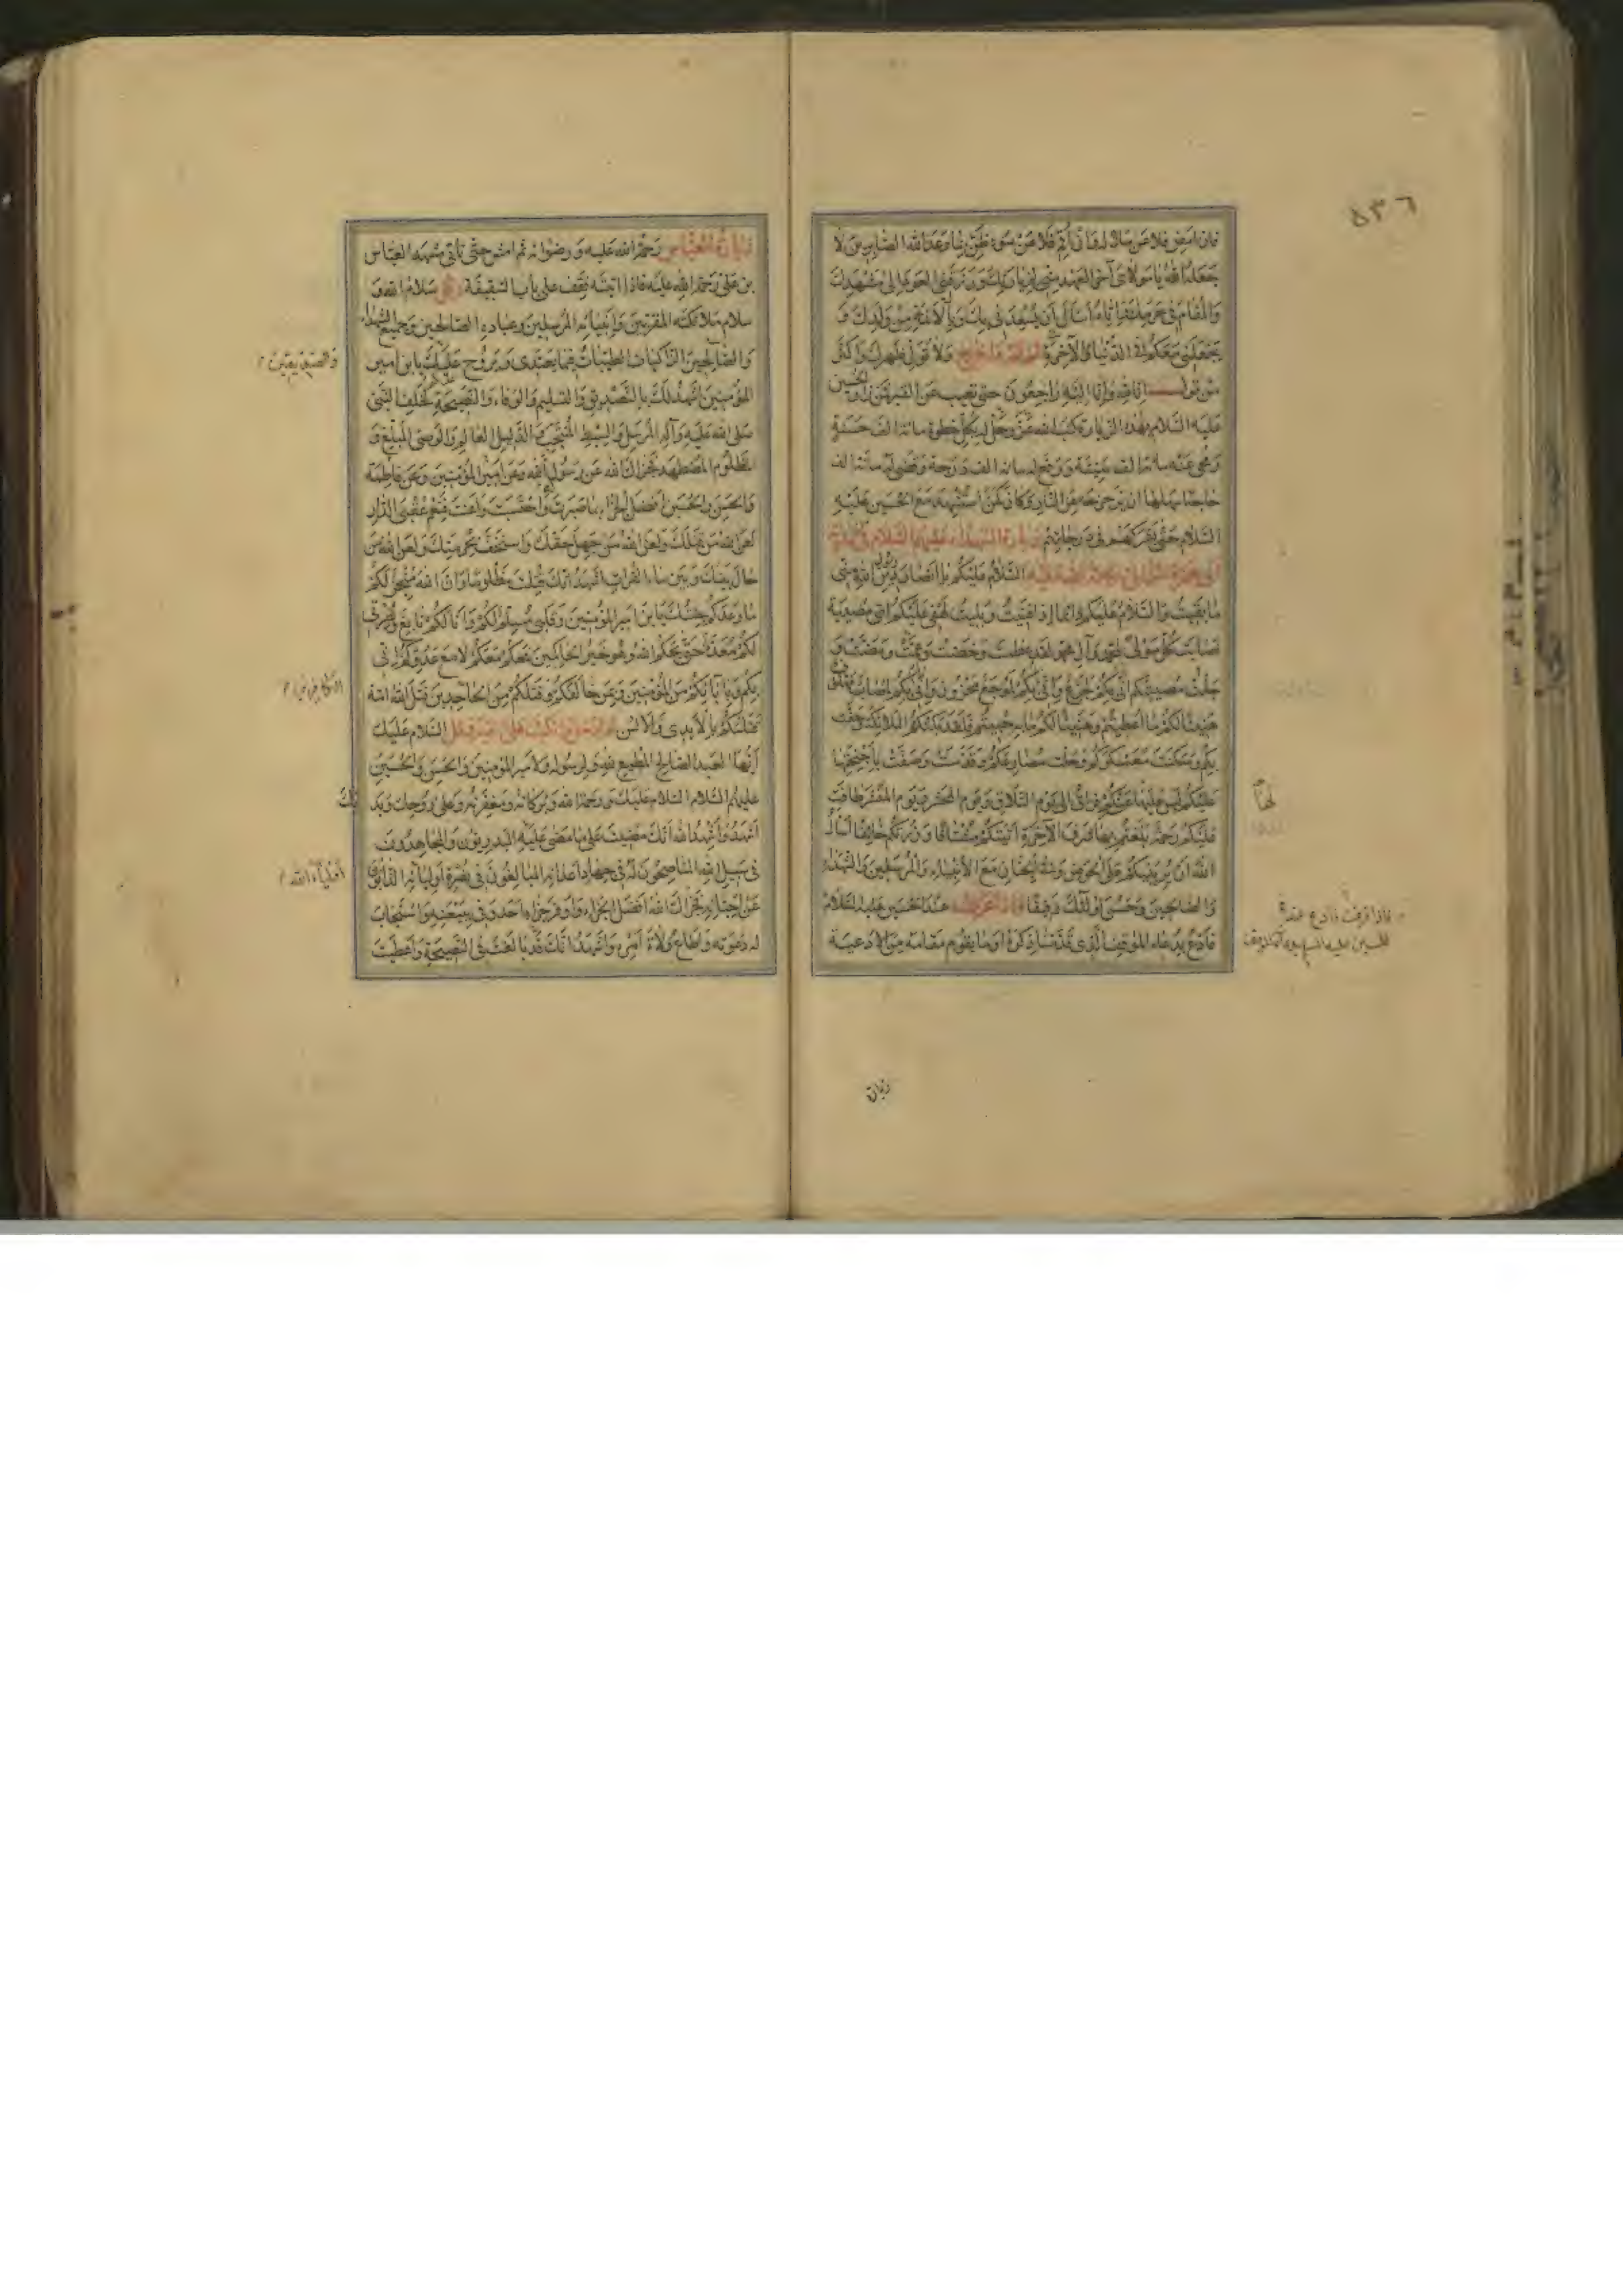 ٥٣٦
فان امض فلا عن ملالة وان اقم فلا عن سوء ظن بما وعد الله الصابرين لا
جعله الله يا مولاي آخر العهد مني لزيارتك ورزقني العود الى مشهدك
والمقام في حرمك واياه اسأل ان يسعدني بك وبالأئمة من ولدك و
يجعلني معكم في الدنيا والآخرة ولا تول ظهرك واكثر
من قول انا لله وانا اليه راجعون حتى تغيب عن القبر فمن زار الحسين
عليه السلام بهذه الزيارة كتب الله عز وجل له بكل خطوة مائة الف حسنة
ومحى عنه مائة الف سيئة ورفع له مائة الف درجة وقضى له مائة الف
حاجة اسهلها ان يزحزحه من النار وكان كمن استشهد مع الحسين عليه
السلام حتى يشركهم في درجاتهم زيارة الشهداء عليهم السلام
السلام عليكم يا انصار دين الله مني
ما بقيت والسلام عليكم دائما اذا فنيت وبليت لهفي عليكم اي مصيبة
اصابت كل مولى لمحمد وآل محمد لقد عظمت وخصت وعمت
جلت مصيبتكم اني بكم لجزع واني بكم لموجع محزون واني بكم لمصاب
هنيئا لكم ما اعطيتم وهنيئا لكم ما به حبيتم فلقد بكتكم الملائكة وحفت
بكم وسكنت معسكركم وحلت مصارعكم وقدست وصفت باجنحتها
عليكم ليس لها عنكم فراق الى يوم التلاق ويوم المحشر ويوم المنشر طافت
لها
عليكم رحمة بلغتم بها شرف الآخرة اتيتكم مشتاقا وزرتكم خائفا اسأل
الله ان يرينيكم على الحوض وفي الجنان مع الانبياء والمرسلين والشهداء
والصالحين وحسن اولئك رفيقا عند الحسين عليه السلام
فادع بدعاء الموقف الذي قدمنا ذكره او ما يقوم مقامه من الادعية
زيارة
زيارة العباس رحمة الله عليه ورضوانه ثم امش حتى تأتي مشهد العباس
بن علي رحمة الله عليه فاذا اتيته فقف على باب السقيفة وقل سلام الله و
سلام ملائكته المقربين وانبيائه المرسلين وعباده الصالحين وجميع الشهداء
والصديقين
والصالحين الزاكيات الطيبات فيما يغتدي ويروح عليك يا ابن امير
المؤمنين اشهد لك بالتصديق والتسليم والوفاء والنصيحة لخلف النبي
صلى الله عليه وآله المرسل والسبط المنتجب والدليل العالم والوصي المبلغ و
المظلوم المضطهد فجزاك الله عن رسول الله وعن امير المؤمنين وعن فاطمة
والحسن والحسين افضل الجزاء بما صبرت واحتسبت واعنت فنعم عقبى الدار
لعن الله من قتلك ولعن الله من جهل حقك واستخف بحرمتك ولعن الله من
حال بينك وبين ماء الفرات اشهد انك قتلت مظلوما وان الله منجز لكم
ما وعدكم جئتك يا ابن امير المؤمنين وقلبي مسلم لكم وانا لكم تابع ونصرتي
لكم معدة حتى يحكم الله وهو خير الحاكمين فمعكم معكم لا مع عدوكم اني
بكم وبايابكم من المؤمنين وبمن خالفكم وقتلكم من الجاحدين قتل الله امة
الكافرين
قتلتكم بالايدي والالسن ثم ادخل وانكب على القبر وقل السلام عليك
ايها العبد الصالح المطيع لله ولرسوله ولامير المؤمنين والحسن والحسين
عليهم السلام السلام عليك ورحمة الله وبركاته ومغفرته وعلى روحك وبدنك
اشهد واشهد الله انك مضيت على ما مضى عليه البدريون والمجاهدون
في سبيل الله المناصحون له في جهاد اعدائه المبالغون في نصرة اوليائه الذابون
عن احبائه فجزاك الله افضل الجزاء واوفر جزاء احد وفى ببيعته واستجاب
له دعوته واطاع ولاة امره واشهد انك قد بالغت في النصيحة واعطيت